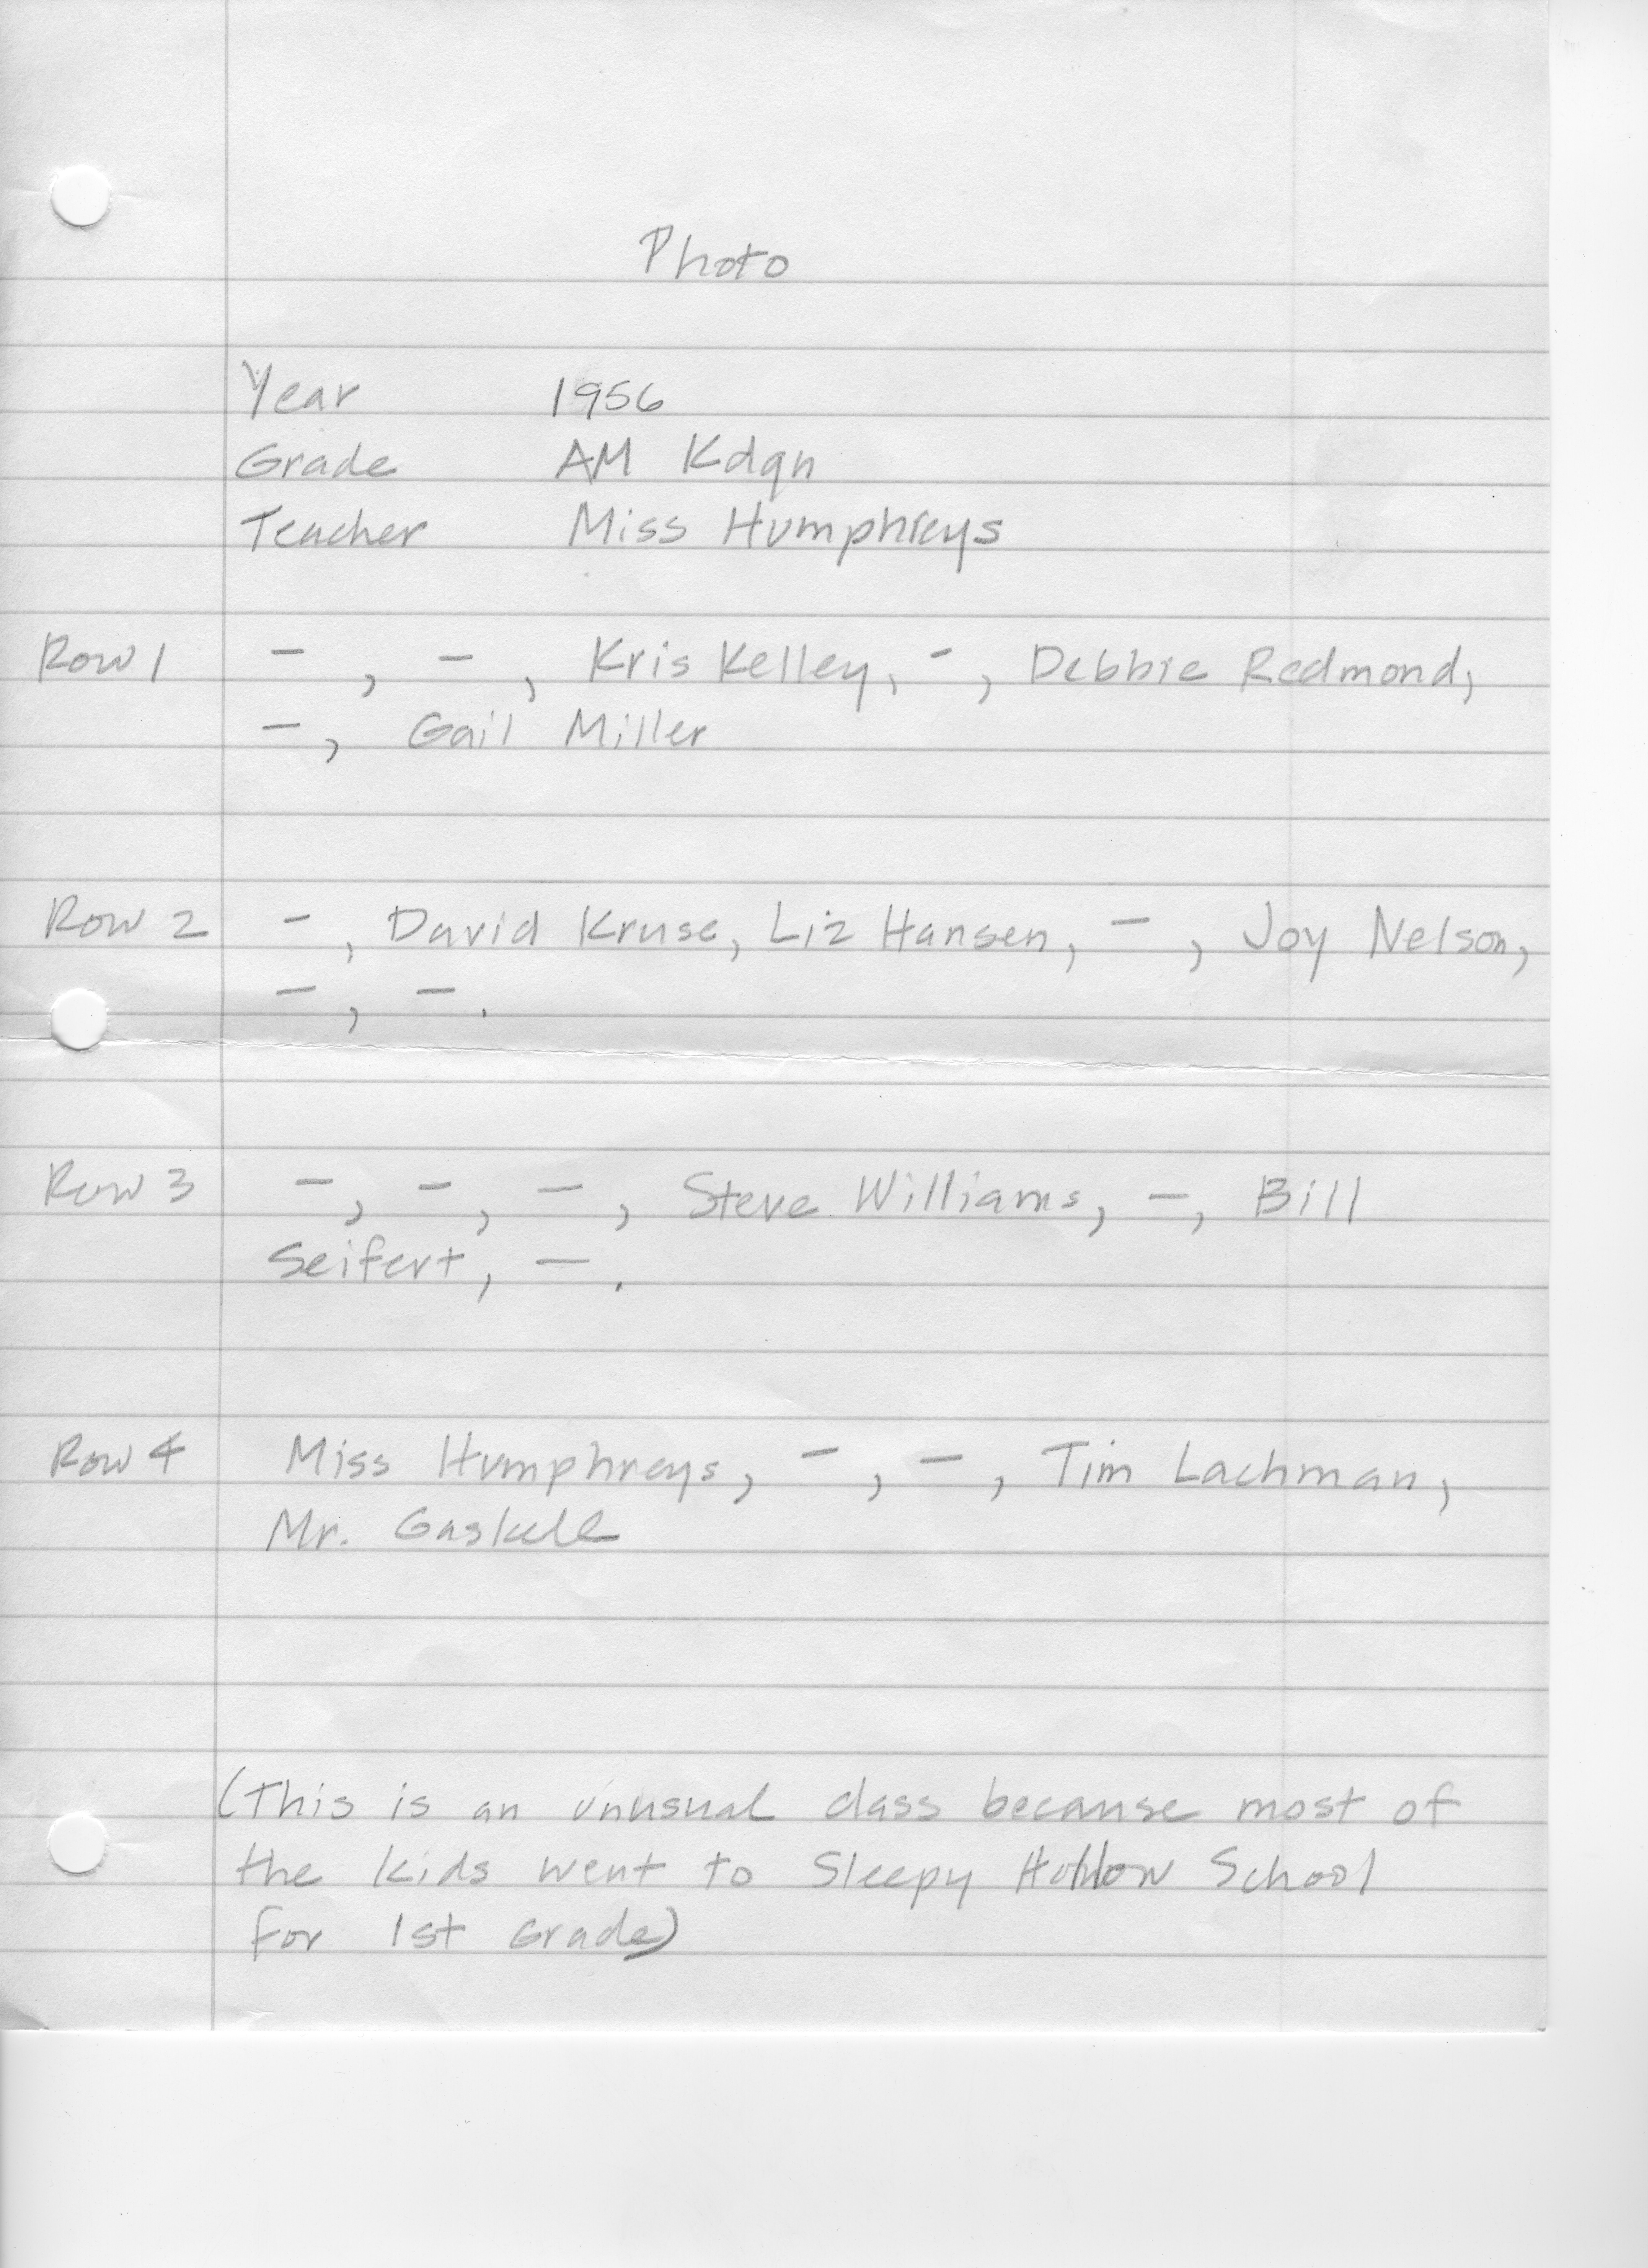 Photo
Year 1956
Grade AM Kdgn
Teacher Miss Humphreys
Row 1 – , – , Kris Kelley, –, Debbie Redmond,
– , Gail Miller
Row 2 – , David Kruse, Liz Hansen, – , Joy Nelson,
– , – .
Row 3 – , – , – , Steve Williams, – , Bill
Seifert, – .
Row 4 Miss Humphreys, – , – , Tim Lachman,
Mr. Gaskell
(This is an unusual class because most of
the kids went to Sleepy Hollow School
for 1st Grade)